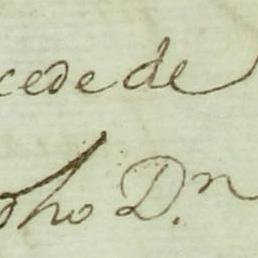 cede de
dho D.n